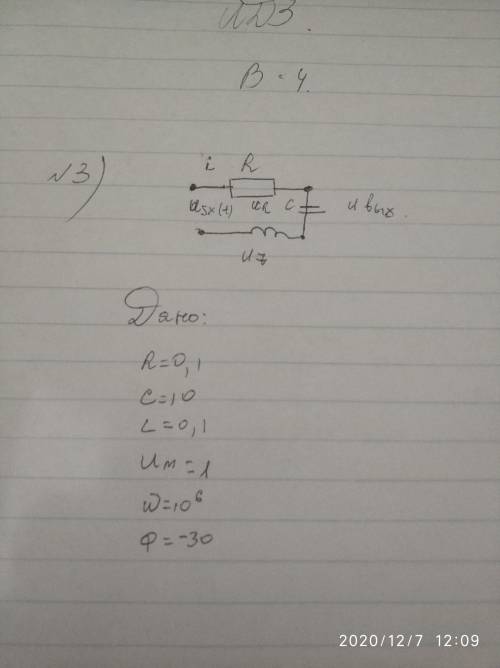 ИДЗ.
В - 4.
№3)
i R
Uвх(t) UR C U вых.
U
Дано:
R=0,1
C=10
L=0,1
Um=1
W=10⁶
φ=-30
2020/12/7 12:09